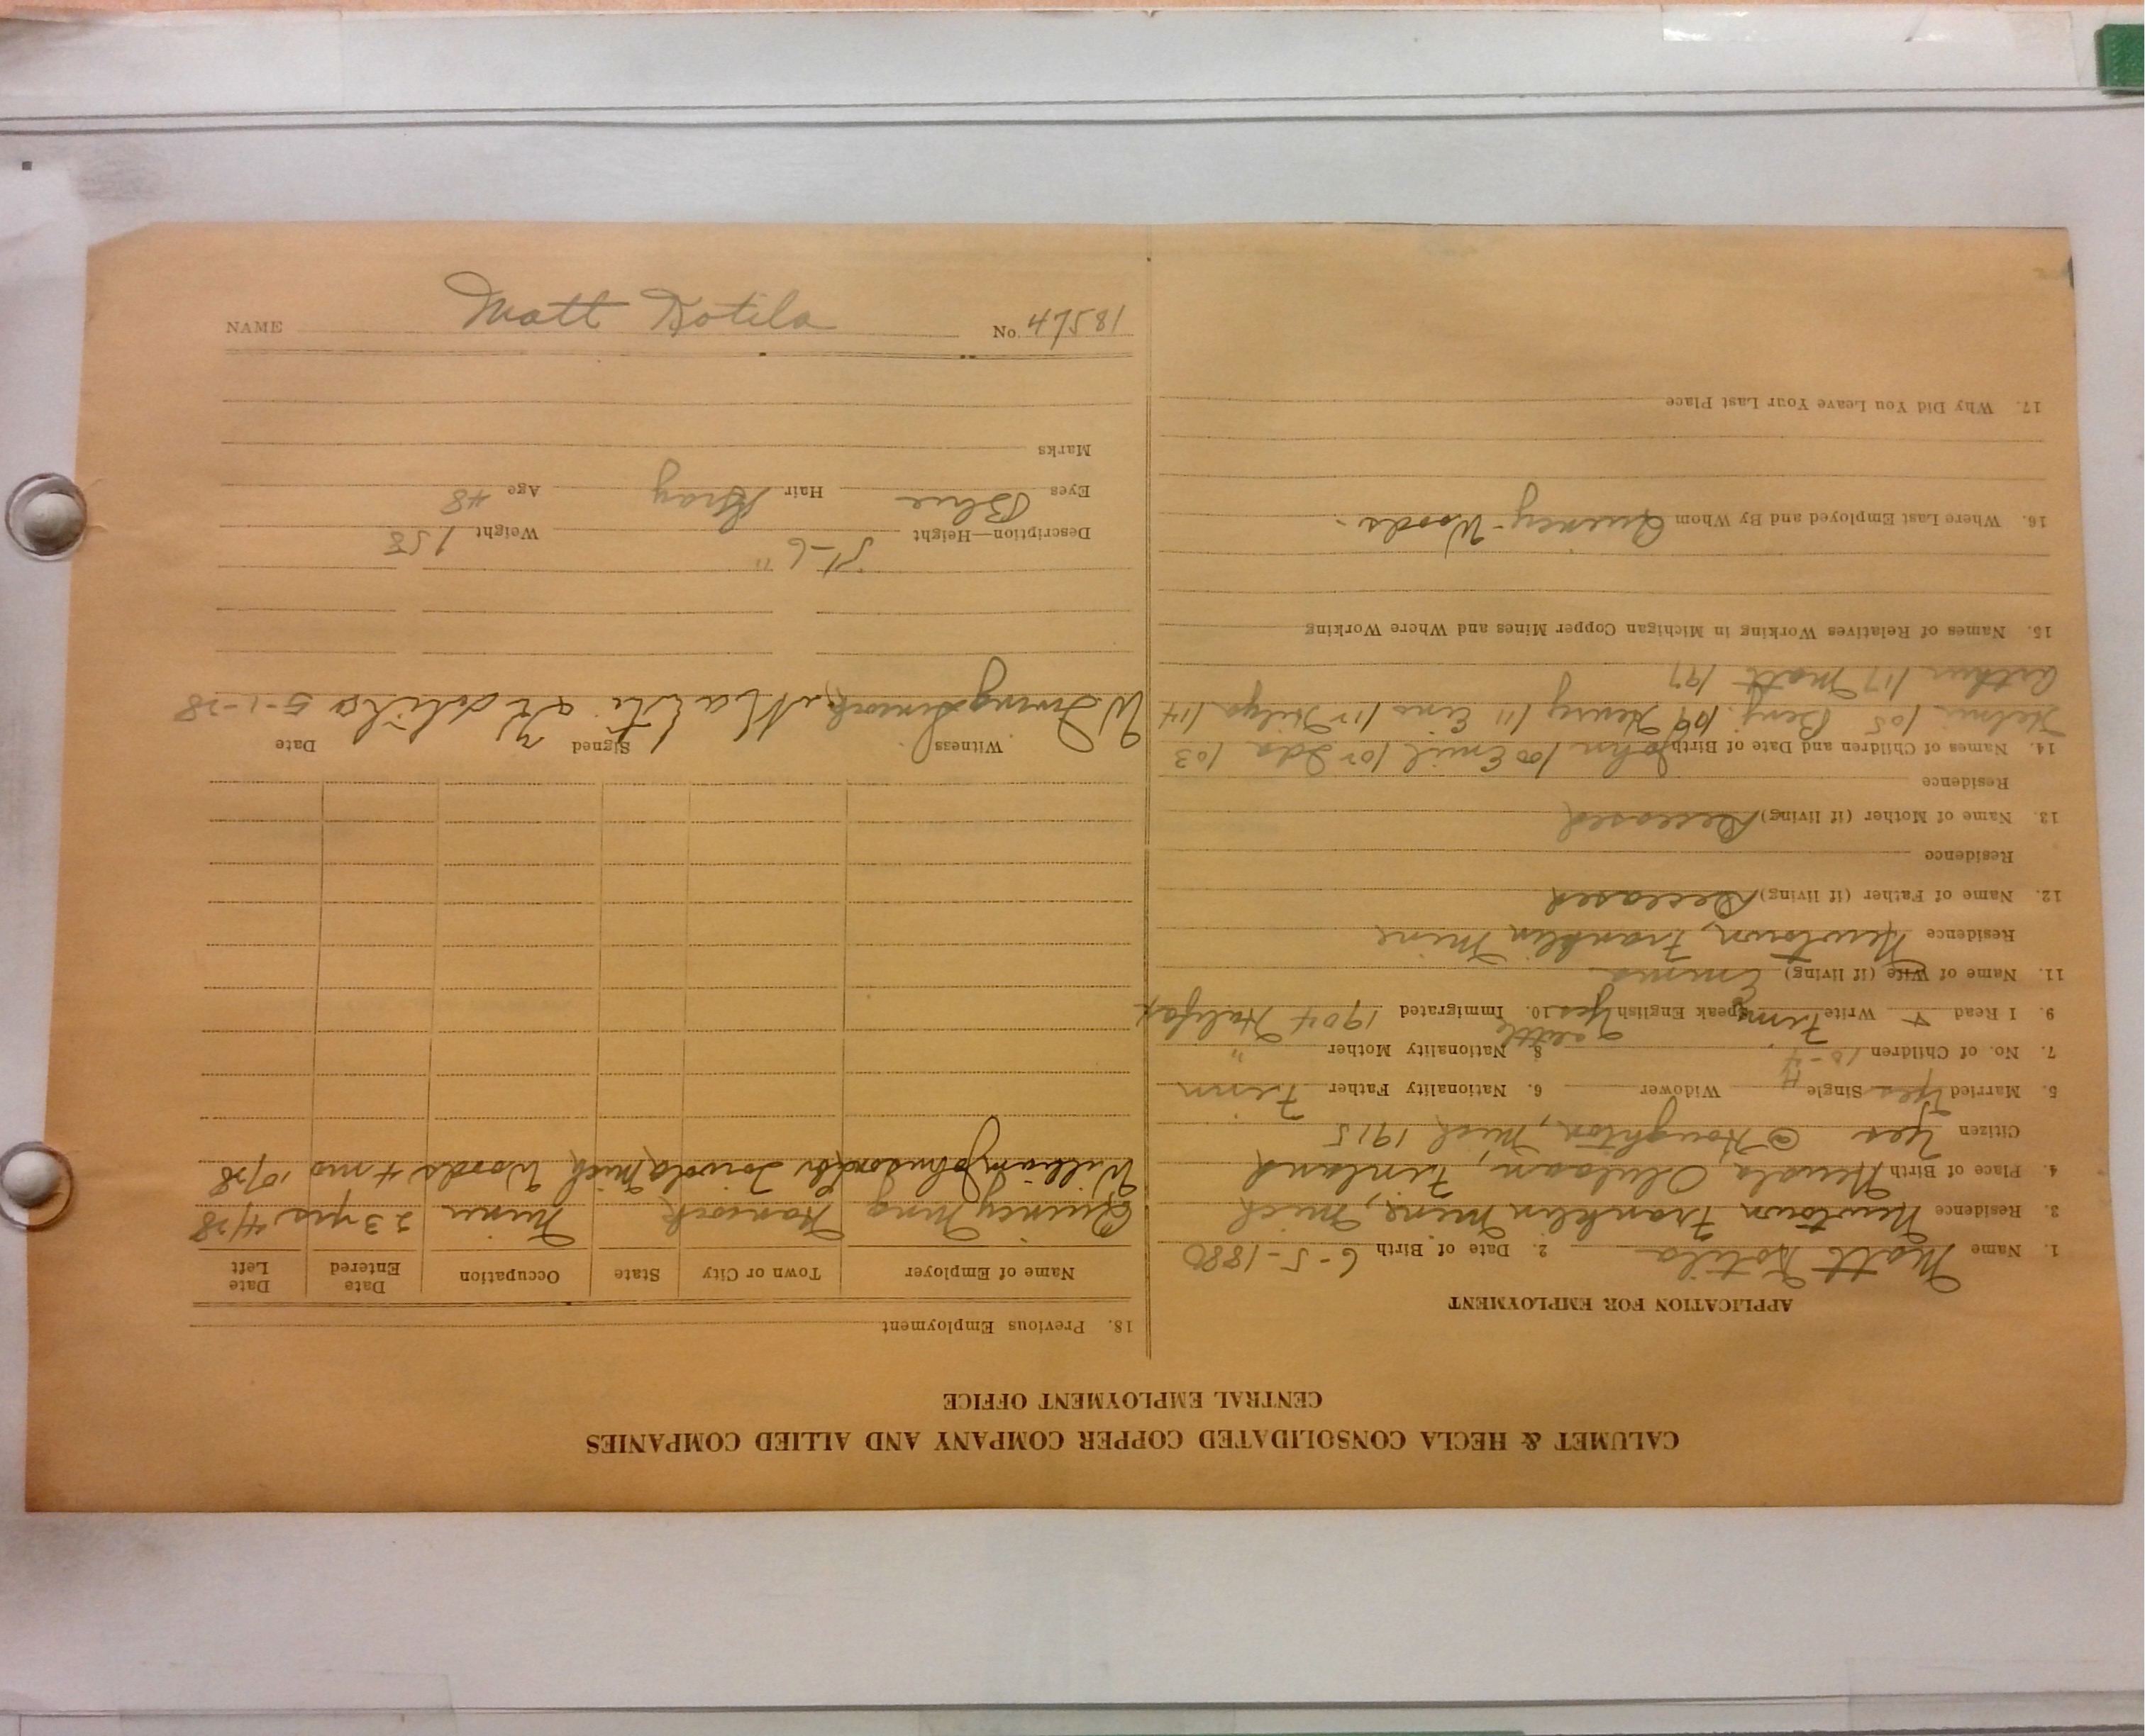 CALUMET & HECLA CONSOLIDATED COPPER COMPANY AND ALLIED COMPANIES
CENTRAL EMPLOYMENT OFFICE
APPLICATION FOR EMPLOYMENT
1. Name Matt Kotila 2. Date of Birth 6-5-1880
3. Residence Newtown Franklin Mine, Mich
4. Place of Birth Oulaan, Finland
Citizen Yes @ Houghton, Mich 1915
5. Married Yes Single Widower 6. Nationality Father Finn
7. No. of Children 10-4 8 Nationality Mother "
9. I Read + Write Finn Speak English Little Yes 10. Immigrated 1904 Halifax
11. Name of Wife (if living) Emma
Residence Newtown, Franklin Mine
12. Name of Father (if living) Deceased
Residence
13. Name of Mother (if living) Deceased
Residence
14. Names of Children and Date of Birth John 100 Emil 102 Ida 103
Helmi 105 Benj. 109 Henry 111 Eino 112 Hilya 114
Arthur 117 Matt 197
15. Names of Relatives Working in Michigan Copper Mines and Where Working
16. Where Last Employed and By Whom Quincy-Woods.
17. Why Did You Leave Your Last Place
18. Previous Employment
Name of Employer Town or City State Occupation Date Entered Date Left
Quincy Mng Hancock Miner 23 yrs 4/28
William Johnson Toivola Mich Woods 4 mo 10/28
Witness Signed Date
W. Irving Matti Kotila 5-1-28
Description—Height 5'-6" Weight 158
Eyes Blue Hair Gray Age 48
Marks
NAME Matt Kotila No. 47581